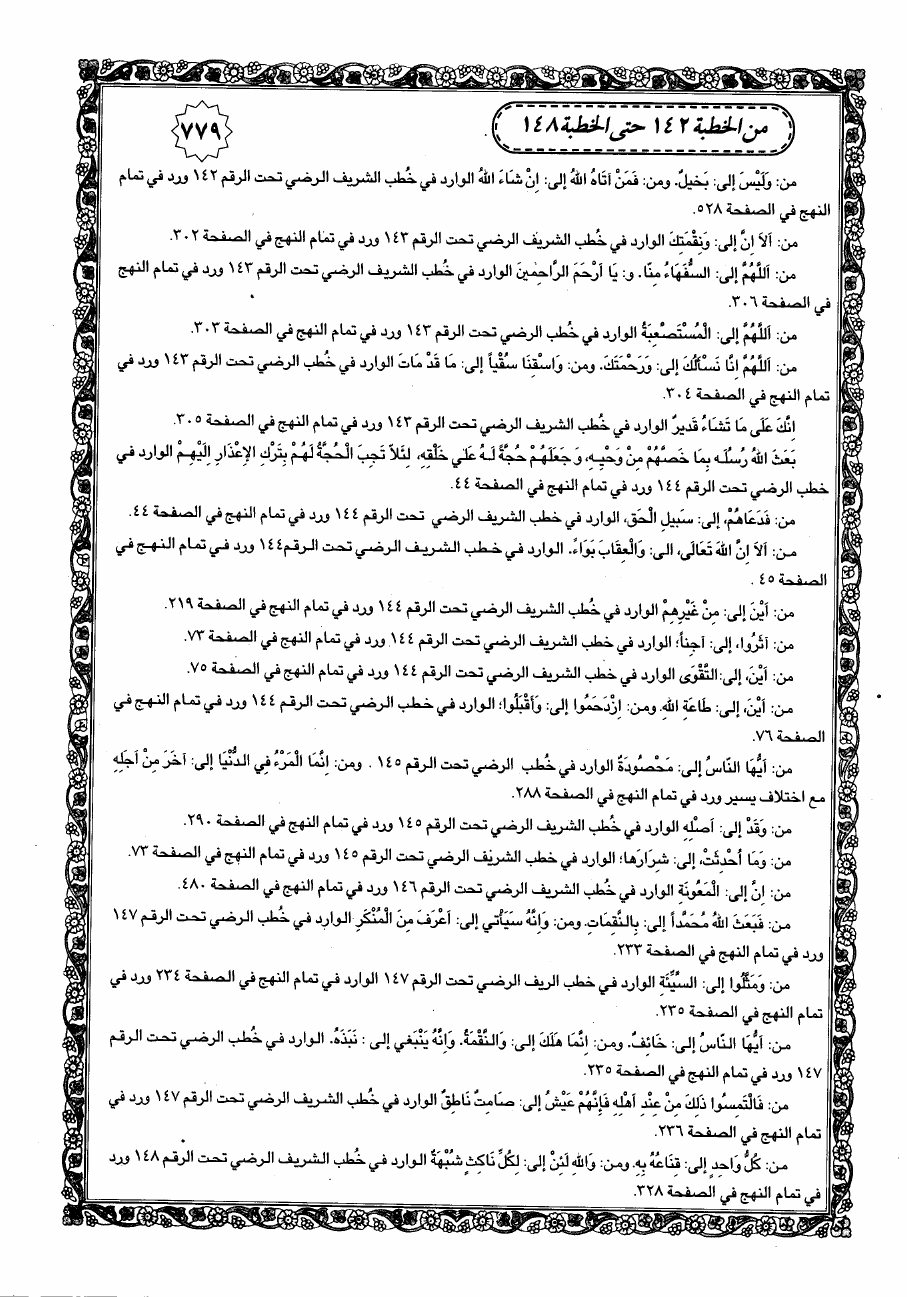 من الخطبة ١٤٢ حتى الخطبة ١٤٨
٧٧٩
من: وَلَيْسَ إلى: بَخيلٌ. ومن: فَمَنْ آتَاهُ اللهُ إلى: إنْ شَاءَ اللهُ الوارد في خُطب الشريف الرضي تحت الرقم ١٤٢ ورد في تمام
النهج في الصفحة ٥٢٨.
من: أَلاَ إِنَّ إلى: وَنِقْمَتِكَ الوارد في خُطب الشريف الرضي تحت الرقم ١٤٣ ورد في تمام النهج في الصفحة ٣٠٢.
من: اَللَّهُمَّ إلى: السُّفَهَاءُ مِنَّا. و: يَا أَرْحَمَ الرَّاحِمينَ الوارد في خُطب الشريف الرضي تحت الرقم ١٤٣ ورد في تمام النهج
في الصفحة ٣٠٦.
من: اَللَّهُمَّ إلى: الْمُسْتَصْعِبَةُ الوارد في خُطب الرضي تحت الرقم ١٤٣ ورد في تمام النهج في الصفحة ٣٠٣.
من: اَللَّهُمَّ إِنَّا نَسْأَلُكَ إلى: وَرَحْمَتَكَ. ومن: وَاسْقِنَا سُقْياً إلى: مَا قَدْ مَاتَ الوارد في خُطب الشريف الرضي تحت الرقم ١٤٣ ورد في
تمام النهج في الصفحة ٣٠٤.
إِنَّكَ عَلَى مَا تَشَاءُ قَديرٌ الوارد في خُطب الشريف الرضي تحت الرقم ١٤٣ ورد في تمام النهج في الصفحة ٣٠٥.
بَعَثَ اللهُ رُسُلَه بِمَا خَصَّهُمْ مِنْ وَحْيِهِ، وَ جَعَلَهُمْ حُجَّةً لَهُ عَلى خَلْقِهِ، لِئَلاَّ تَجِبَ الْحُجَّةُ لَهُمْ بِتَرْكِ الإِعْذَارِ إِلَيْهِمْ الوارد في
خطب الرضي تحت الرقم ١٤٤ ورد في تمام النهج في الصفحة ٤٤.
من: فَدَعَاهُمْ، إلى: سَبيلِ الْحَق، الوارد في خطب الشريف الرضي تحت الرقم ١٤٤ ورد في تمام النهج في الصفحة ٤٤.
من: أَلاَ إِنَّ اللهَ تَعَالَى، الى: وَالْعِقَابَ بَوَاءً. الوارد في خطب الشريف الرضي تحت الرقم١٤٤ ورد في تمام النهج في
الصفحة ٤٥ .
من: أَيْنَ إلى: مِنْ غَيْرِهِمْ الوارد في خُطب الشريف الرضي تحت الرقم ١٤٤ ورد في تمام النهج في الصفحة ٢١٩.
من: آثَرُوا، إلى: آجِناً؛ الوارد في خطب الشريف الرضي تحت الرقم ١٤٤ ورد في تمام النهج في الصفحة ٧٣.
من: أَيْنَ، إلى: التَّقْوَى الوارد في خطب الشريف الرضي تحت الرقم ١٤٤ ورد في تمام النهج في الصفحة ٧٥.
من: أَيْنَ، إلى: طَاعَةِ اللهِ. ومن: اِزْدَحَمُوا إلى: وَأَقْبَلُوا؛ الوارد في خطب الرضي تحت الرقم ١٤٤ ورد في تمام النهج في
الصفحة ٧٦.
من: أَيُّهَا النَّاسُ إلى: مَحْصُودَةٌ الوارد في خُطب الرضي تحت الرقم ١٤٥ . ومن: إِنَّمَا الْمَرْءُ فِي الدُّنْيَا إلى: آخَرَ مِنْ أَجَلِهِ
مع اختلاف يسير ورد في تمام النهج في الصفحة ٢٨٨.
من: وَقَدْ إلى: أَصْلِهِ الوارد في خُطب الشريف الرضي تحت الرقم ١٤٥ ورد في تمام النهج في الصفحة ٢٩٠.
من: وَمَا أُحْدِثَتْ، إلى: شِرَارَهَا؛ الوارد في خطب الشريف الرضي تحت الرقم ١٤٥ ورد في تمام النهج في الصفحة ٧٣.
من: إِنَّ إلى: الْمَعُونَةِ الوارد في خُطب الشريف الرضي تحت الرقم ١٤٦ ورد في تمام النهج في الصفحة ٤٨٠.
من: فَبَعَثَ اللهُ مُحَمَّداً إلى: بِالنَّقِمَاتِ. ومن: وَإِنَّهُ سَيَأْتي إلى: أَعْرَفَ مِنَ الْمُنْكَرِ الوارد في خُطب الرضي تحت الرقم ١٤٧
ورد في تمام النهج في الصفحة ٢٣٣.
من: وَمَثَّلُوا إلى: السَّيِّئَةِ الوارد في خطب الريف الرضي تحت الرقم ١٤٧ الوارد في تمام النهج في الصفحة ٢٣٤ ورد في
تمام النهج في الصفحة ٢٣٥.
من: أَيُّهَا النَّاسُ إلى: خَائِفٌ. ومن: إِنَّمَا هَلَكَ إلى: وَالنَّقْمَةُ. وَإِنَّهُ يَنْبَغي إلى : نَبَذَهُ. الوارد في خُطب الرضي تحت الرقم
١٤٧ ورد في تمام النهج في الصفحة ٢٣٥.
من: فَالْتَمِسُوا ذَلِكَ مِنْ عِنْدِ أَهْلِهِ فَإِنَّهُمْ عَيْشُ إلى: صَامِتٌ نَاطِقٌ الوارد في خُطب الشريف الرضي تحت الرقم ١٤٧ ورد في
تمام النهج في الصفحة ٢٣٦.
من: كُلُّ وَاحِدٍ إلى: قِنَاعُهُ بِهِ. ومن: وَاللهِ لَئِنْ إلى: لِكُلِّ نَاكِثٍ شُبْهَةٌ الوارد في خُطب الشريف الرضي تحت الرقم ١٤٨ ورد
في تمام النهج في الصفحة ٣٢٨.